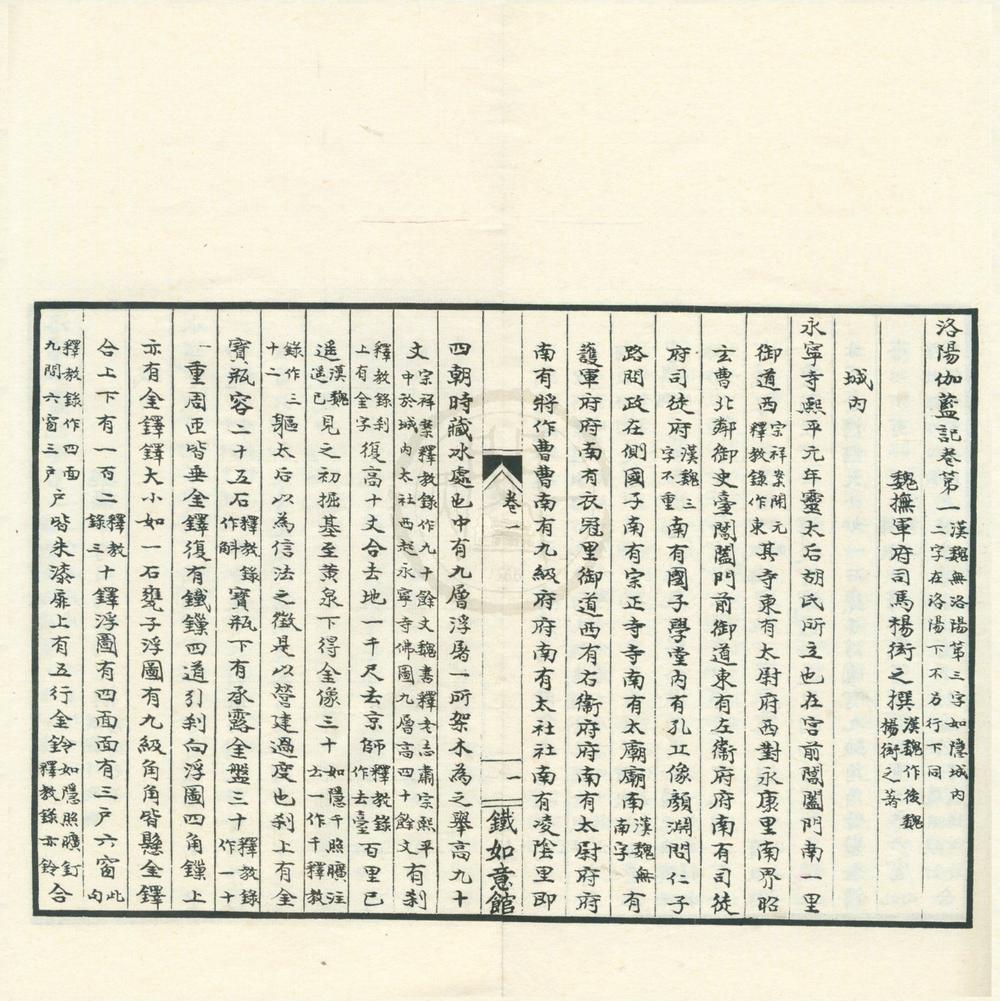 洛陽伽藍記卷第一漢魏無洛陽第三字如隱城內二字在洛陽下不另行下同
魏撫軍府司馬楊衒之撰漢魏作後魏楊衒之著
城內
永寧寺熙平元年靈太后胡氏所立也在宮前閶闔門南一里
御道西宗祥案開元釋教錄作東其寺東有太尉府西對永康里南界昭
玄曹北鄰御史臺閶闔門前御道東有左衞府府南有司徒
府司徒府漢魏三字不重南有國子學堂內有孔丘像顏淵問仁子
路問政在側國子南有宗正寺寺南有太廟廟南漢魏無南字有
護軍府府南有衣冠里御道西有右衞府府南有太尉府府
南有將作曹曹南有九級府府南有太社社南有凌陰里即
卷一
一
鐵如意館
四朝時藏冰處也中有九層浮屠一所架木為之舉高九十
丈宗祥案釋教錄作九十餘丈魏書釋老志肅宗熙平中於城內太社西起永寧寺佛圖九層高四十餘丈有剎
釋教錄剎上有金字復高十丈合去地一千尺去京師釋教錄作去臺百里已
遥漢魏遥已見之初掘基至黃泉下得金像三十如隱千照曠注去一作千釋教
錄作三十二軀太后以為信法之徵是以營建過度也剎上有金
寶瓶容二十五石釋教錄作斛寶瓶下有承露金盤三十釋教錄作一十
一重周匝皆垂金鐸復有鐵鏁四道引剎向浮圖四角鏁上
亦有金鐸鐸大小如一石甕子浮圖有九級角角皆懸金鐸
合上下有一百二釋教錄三十鐸浮圖有四面面有三戶六窗此句
釋教錄作四面九間六窗三戶戶皆朱漆扉上有五行金鈴如隱照曠釘釋教錄亦鈴合